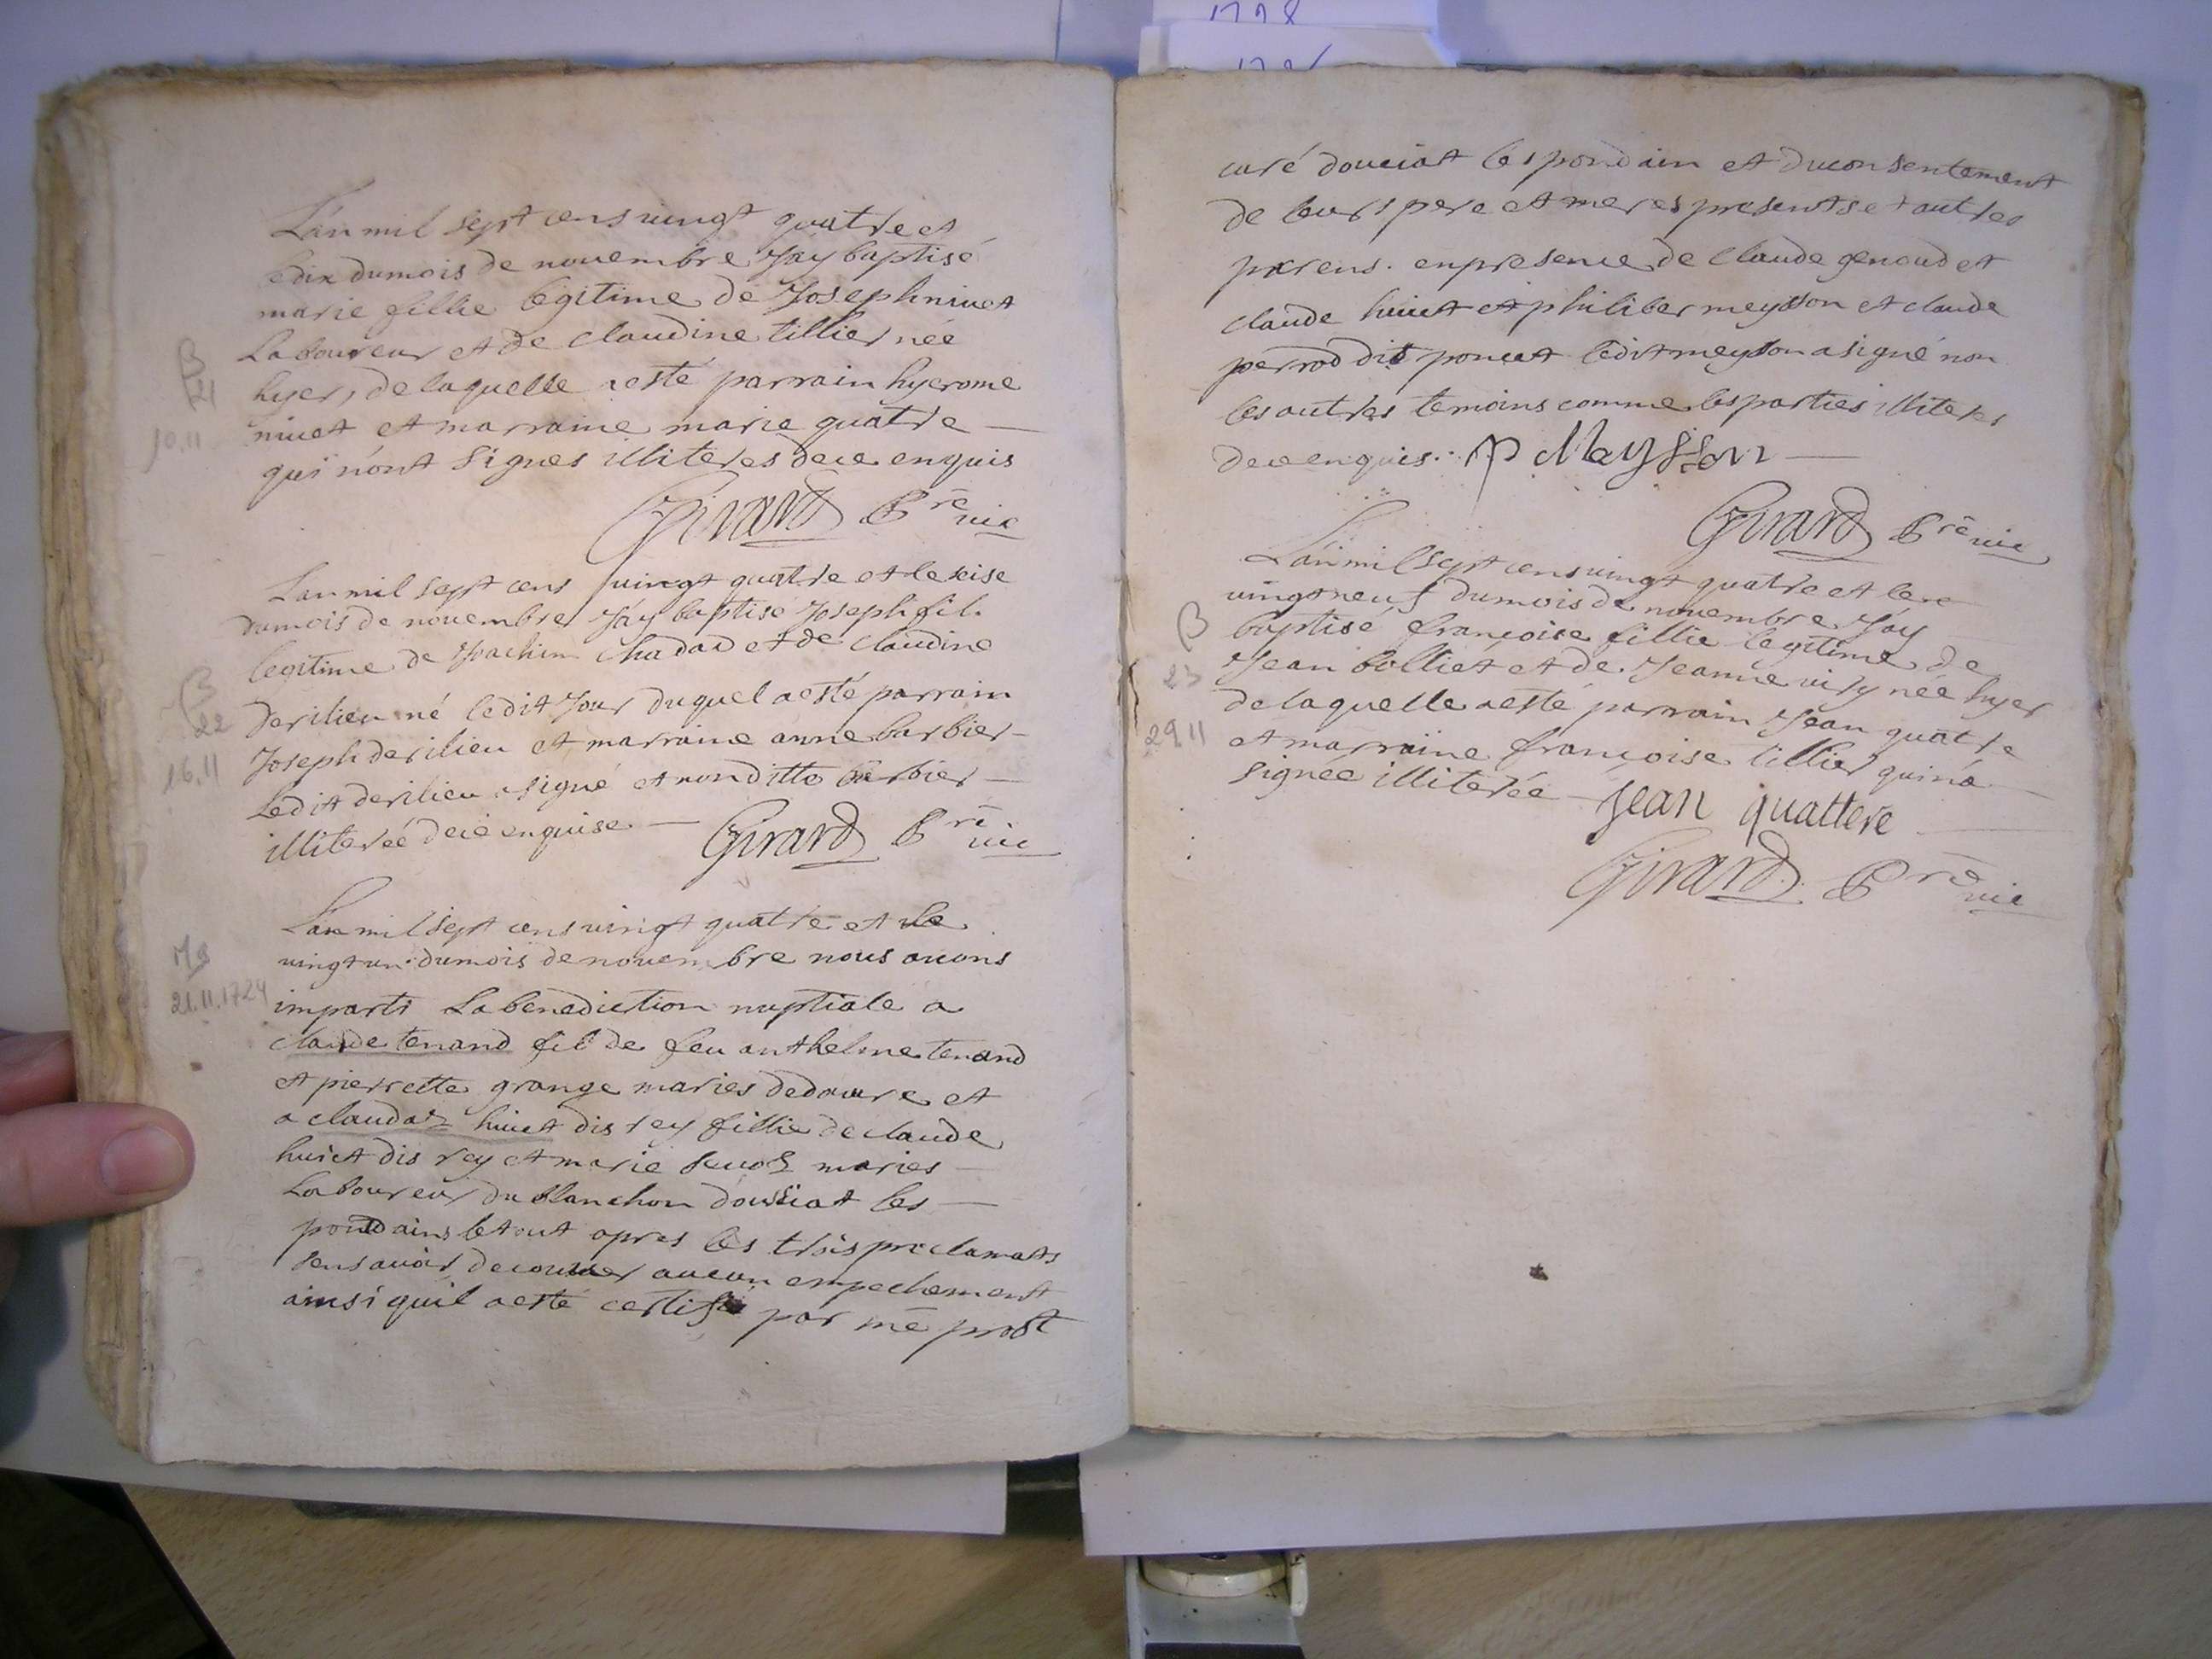 1728
L'an mil sept cens vingt quatre et
le dix du mois de novembre Jay baptisé
marie fillie legitime de Joseph nivet
Laboureur et de claudine tillier née
hyer, de laquelle a esté parrain hyerome
nivet et marraine marie quatre
qui n'ont signes illiteres de ce enquis
Girard Pre vic
B
21
10.11
Lan mil sept cens vingt quatre et le seise
du mois de novembre Jay baptisé Joseph fil
legitime de Joachim Chadad et de claudine
derilieu né ledit Jour duquel a esté parrain
Joseph derilieu et marraine anne barbier
Ledit derilieu a signé et non ditte barbier
illiterée de ce enquise
Girard Pre vic
B
22
16.11
Lan mil sept cens vingt quatre et le
vingt un du mois de novembre nous avons
imparti La benediction nuptiale a
claude tenand fil de feu anthelme tenand
et pierrette grange maries de et
a claudaz huiet dis rey fillie de claude
huiet dis rey et marie maries
Laboureur du blanchon doussiat les
pondains le tout apres les trois proclamats
sens avoir decouver aucun empechement
ainsi quil a esté certifié par mê prost
M8
21.11.1724
curé douciat les pondain et du consentement
de leurs pere et meres presents et autres
parens. en presence de Claude genoud et
claude huiet et philiber meysson et claude
perrod dit poncet ledit meysson a signé non
les autres temoins comme les parties illiteres
de ce enquis. P Meysson
Girard Pre vic
L'an mil sept cens vingt quatre et le
vingt neuf du mois de novembre Jay
baptisé françoise fillie legitime de
Jean bolliet et de Jeanne née hyer
de laquelle a esté parrain Jean quatre
et marraine françoise tillier qui n'a
signée illiterée Jean quattere
Girard Pre vic
B
23
29.11